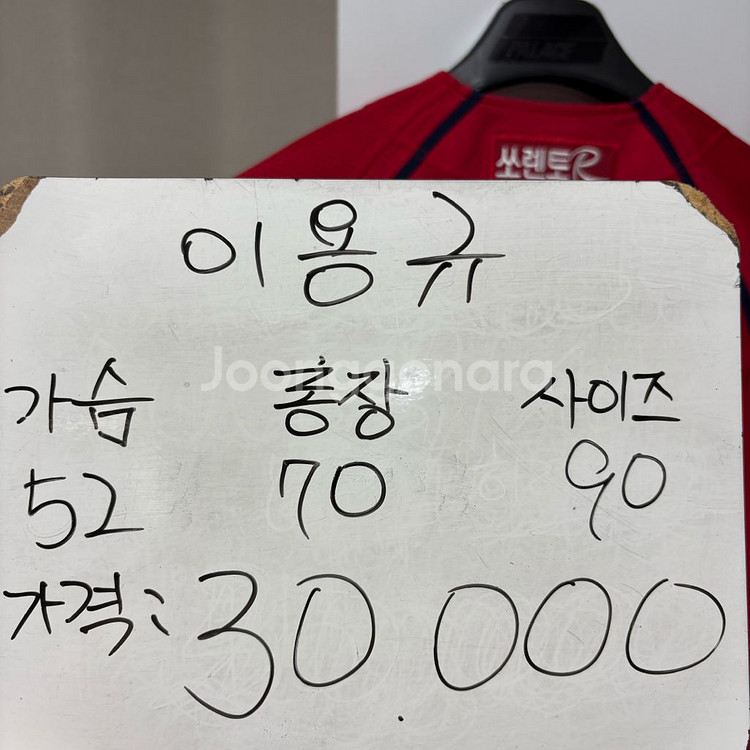 PALACE
쏘렌토R
이용규
가슴 총장 사이즈
52 70 90
가격: 30.000
Joonggonara